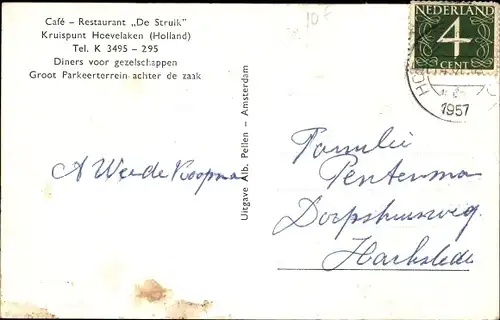 Café – Restaurant „De Struik"
Kruispunt Hoevelaken (Holland)
Tel. K 3495 – 295
Diners voor gezelschappen
Groot Parkeerterrein achter de zaak
Uitgave Alb. Pellen – Amsterdam
10F
NEDERLAND
4
CENT
1957
Familie
Pentenma
Dorpshuisweg.
Harkstede